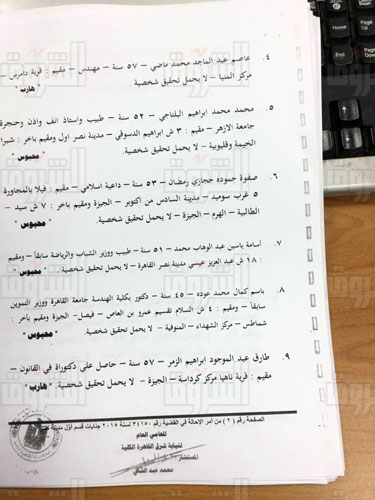 ٤. عاصم عبد الماجد محمد ماضي – ٥٧ سنة – مهندس – مقيم : قرية دامرس –
مركز المنيا – لا يحمل تحقيق شخصية. " هارب "
٥. محمد محمد ابراهيم البلتاجي – ٥٢ سنة – طبيب واستاذ انف واذن وحنجرة
جامعة الازهر – مقيم : ٣ ش ابراهيم الدسوقي – مدينة نصر اول ومقيم باخر : شبرا
الخيمة وقليوبية – لا يحمل تحقيق شخصية. " محبوس "
٦. صفوة حموده حجازي رمضان – ٥٣ سنة – داعية اسلامي – مقيم : فيلا بالمجاورة
٥ غرب سوميد – مدينة السادس من اكتوبر – الجيزة ومقيم باخر : ٧ ش سيد –
الطالبية – الهرم – الجيزة – لا يحمل تحقيق شخصية. " محبوس "
٧. أسامة ياسين عبد الوهاب محمد – ٥١ سنة – طبيب ووزير الشباب والرياضة سابقاً – ومقيم
: ١٨ ش عبد العزيز عيسي مدينة نصر القاهرة – لا يحمل تحقيق شخصية. " محبوس "
٨. باسم كمال محمد عوده – ٤٥ سنة – دكتور بكلية الهندسة جامعة القاهرة ووزير التموين
سابقاً – ومقيم : ٤ ش السلام تقسيم عمرو بن العاص – فيصل – الجيزة ومقيم باخر :
شماطس – مركز الشهداء – المنوفية – لا يحمل تحقيق شخصية. " محبوس "
٩. طارق عبد الموجود ابراهيم الزمر – ٥٧ سنة – حاصل علي دكتوراة في القانون –
مقيم : قرية ناهيا مركز كرداسة – الجيزة – لا يحمل تحقيق شخصية. " هارب "
الصفحة رقم ( ٢ ) من أمر الإحالة في القضية رقم ٣٤١٥٠ لسنة ٢٠١٥ جنايات قسم أول مدينة
المحامي العام
لنيابة شرق القاهرة الكلية
المستشار
محمد عبد الشافي
الشروق